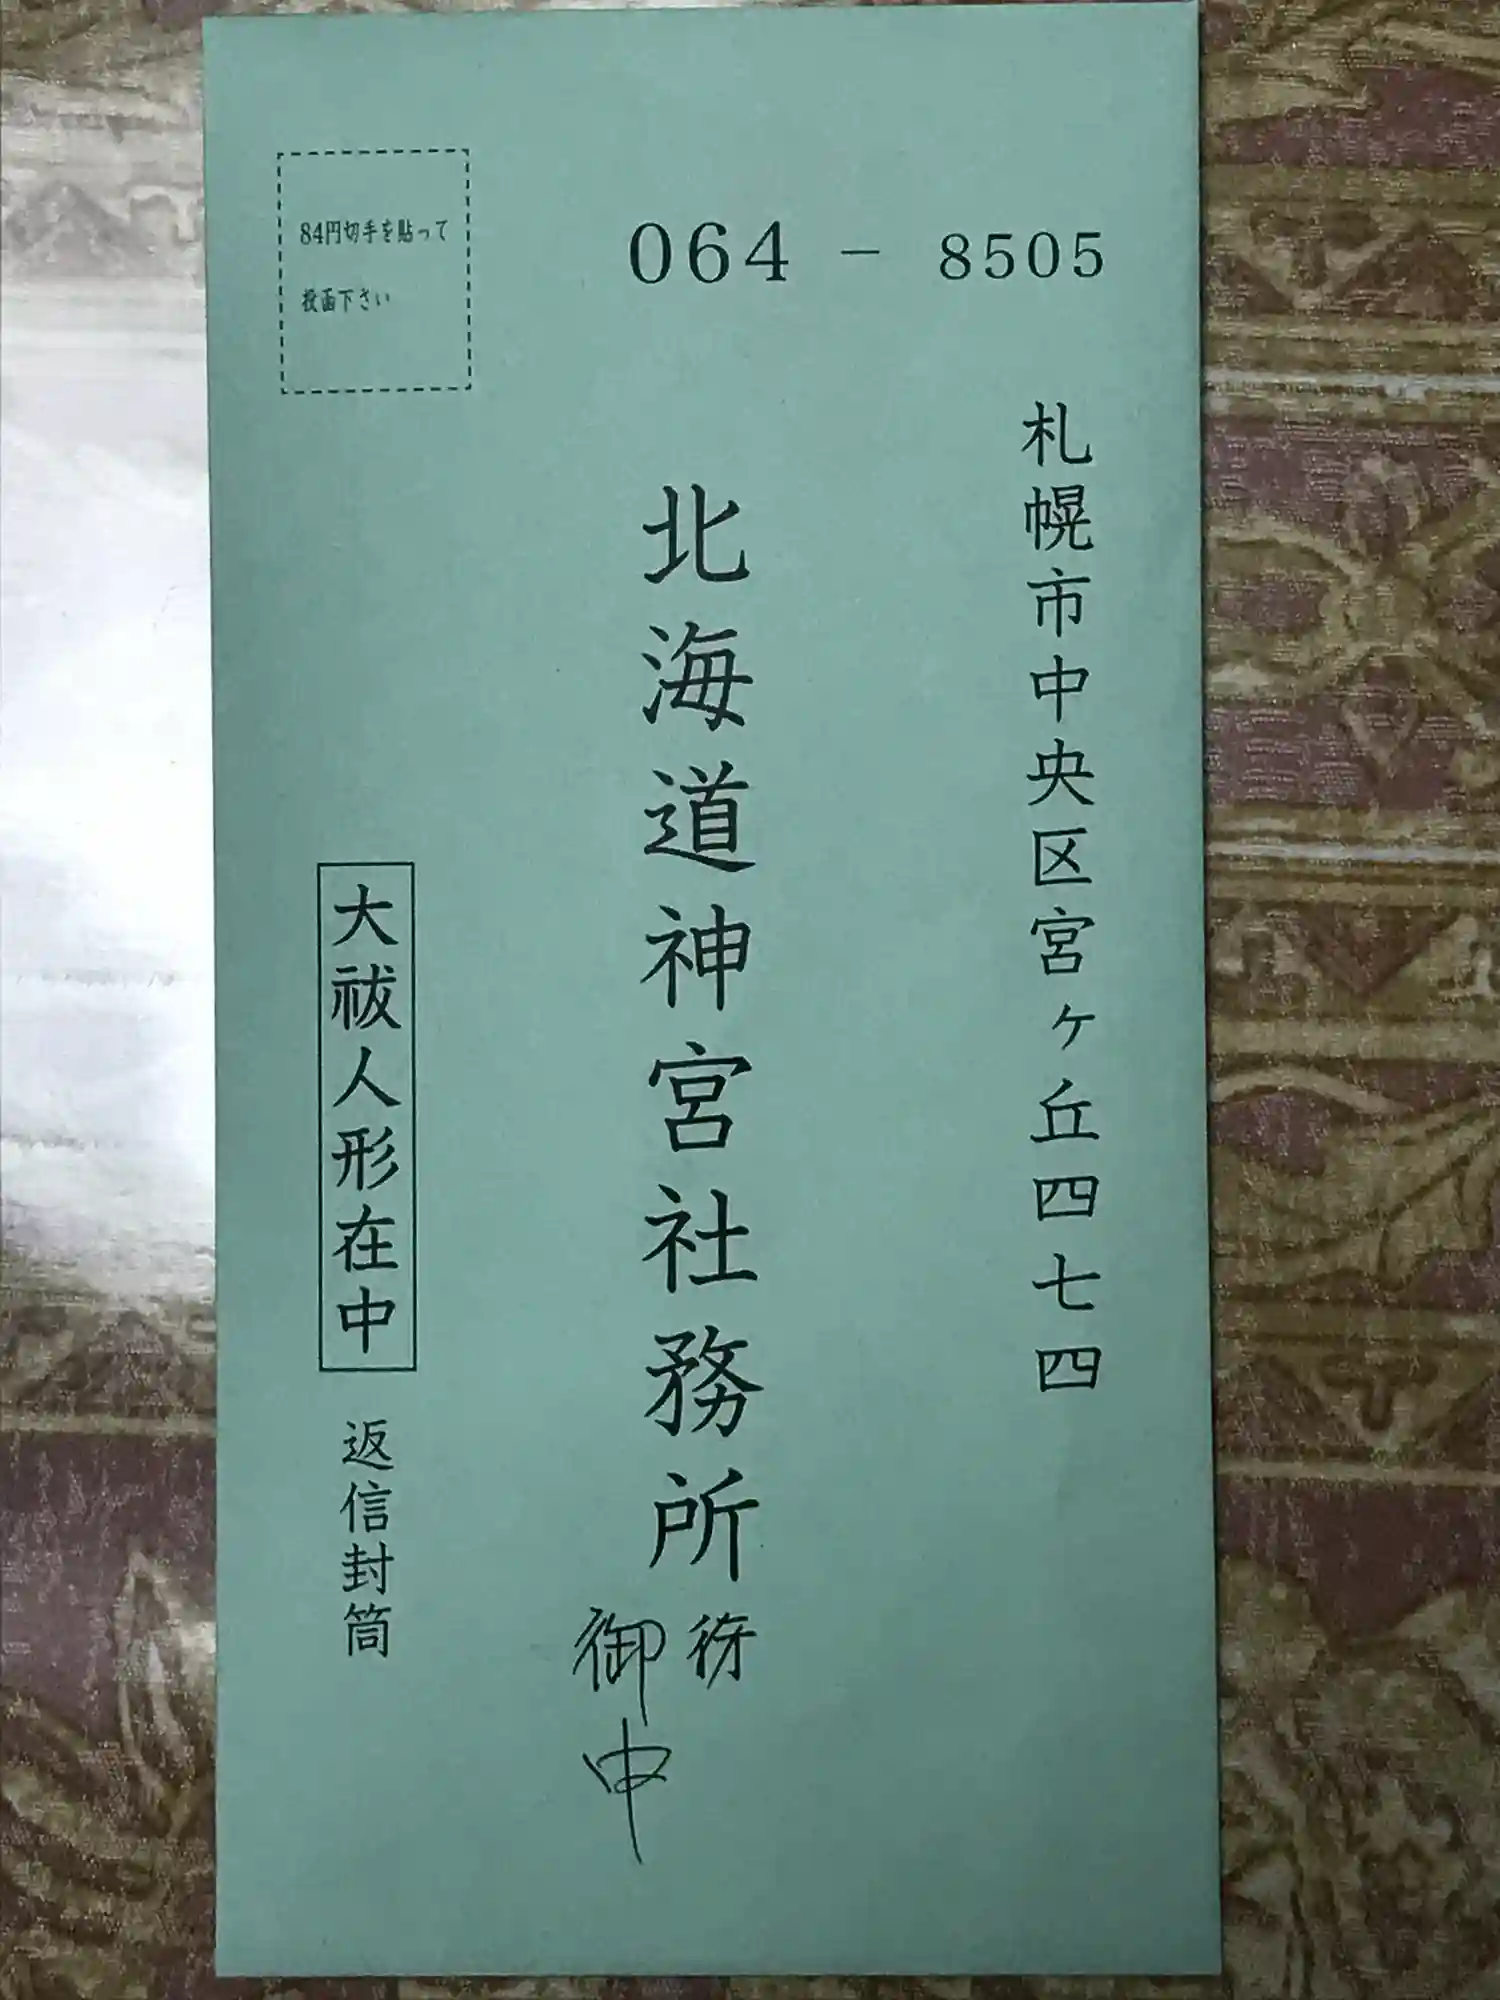 064 − 8505
札幌市中央区宮ヶ丘四七四
北海道神宮社務所
御中
84円切手を貼って
投函下さい
大祓人形在中
返信封筒